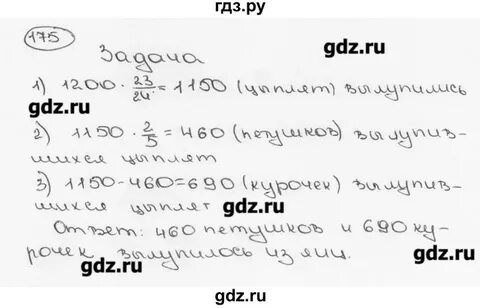 гдз.ру
175
gdz.ru
Задача
gdz.ru
1) 1200 · 23/24 = 1150 (цыплят) вылупились
gdz.ru
gdz.ru
2) 1150 · 2/5 = 460 (петушков) вылупив-
шихся цыплят
gdz.ru
3) 1150-460=690 (курочек) вылупив-
шихся цыплят
gdz.ru
gdz.ru
Ответ: 460 петушков и 690 ку-
рочек вылупилось из яиц.
gdz.ru
gdz.ru